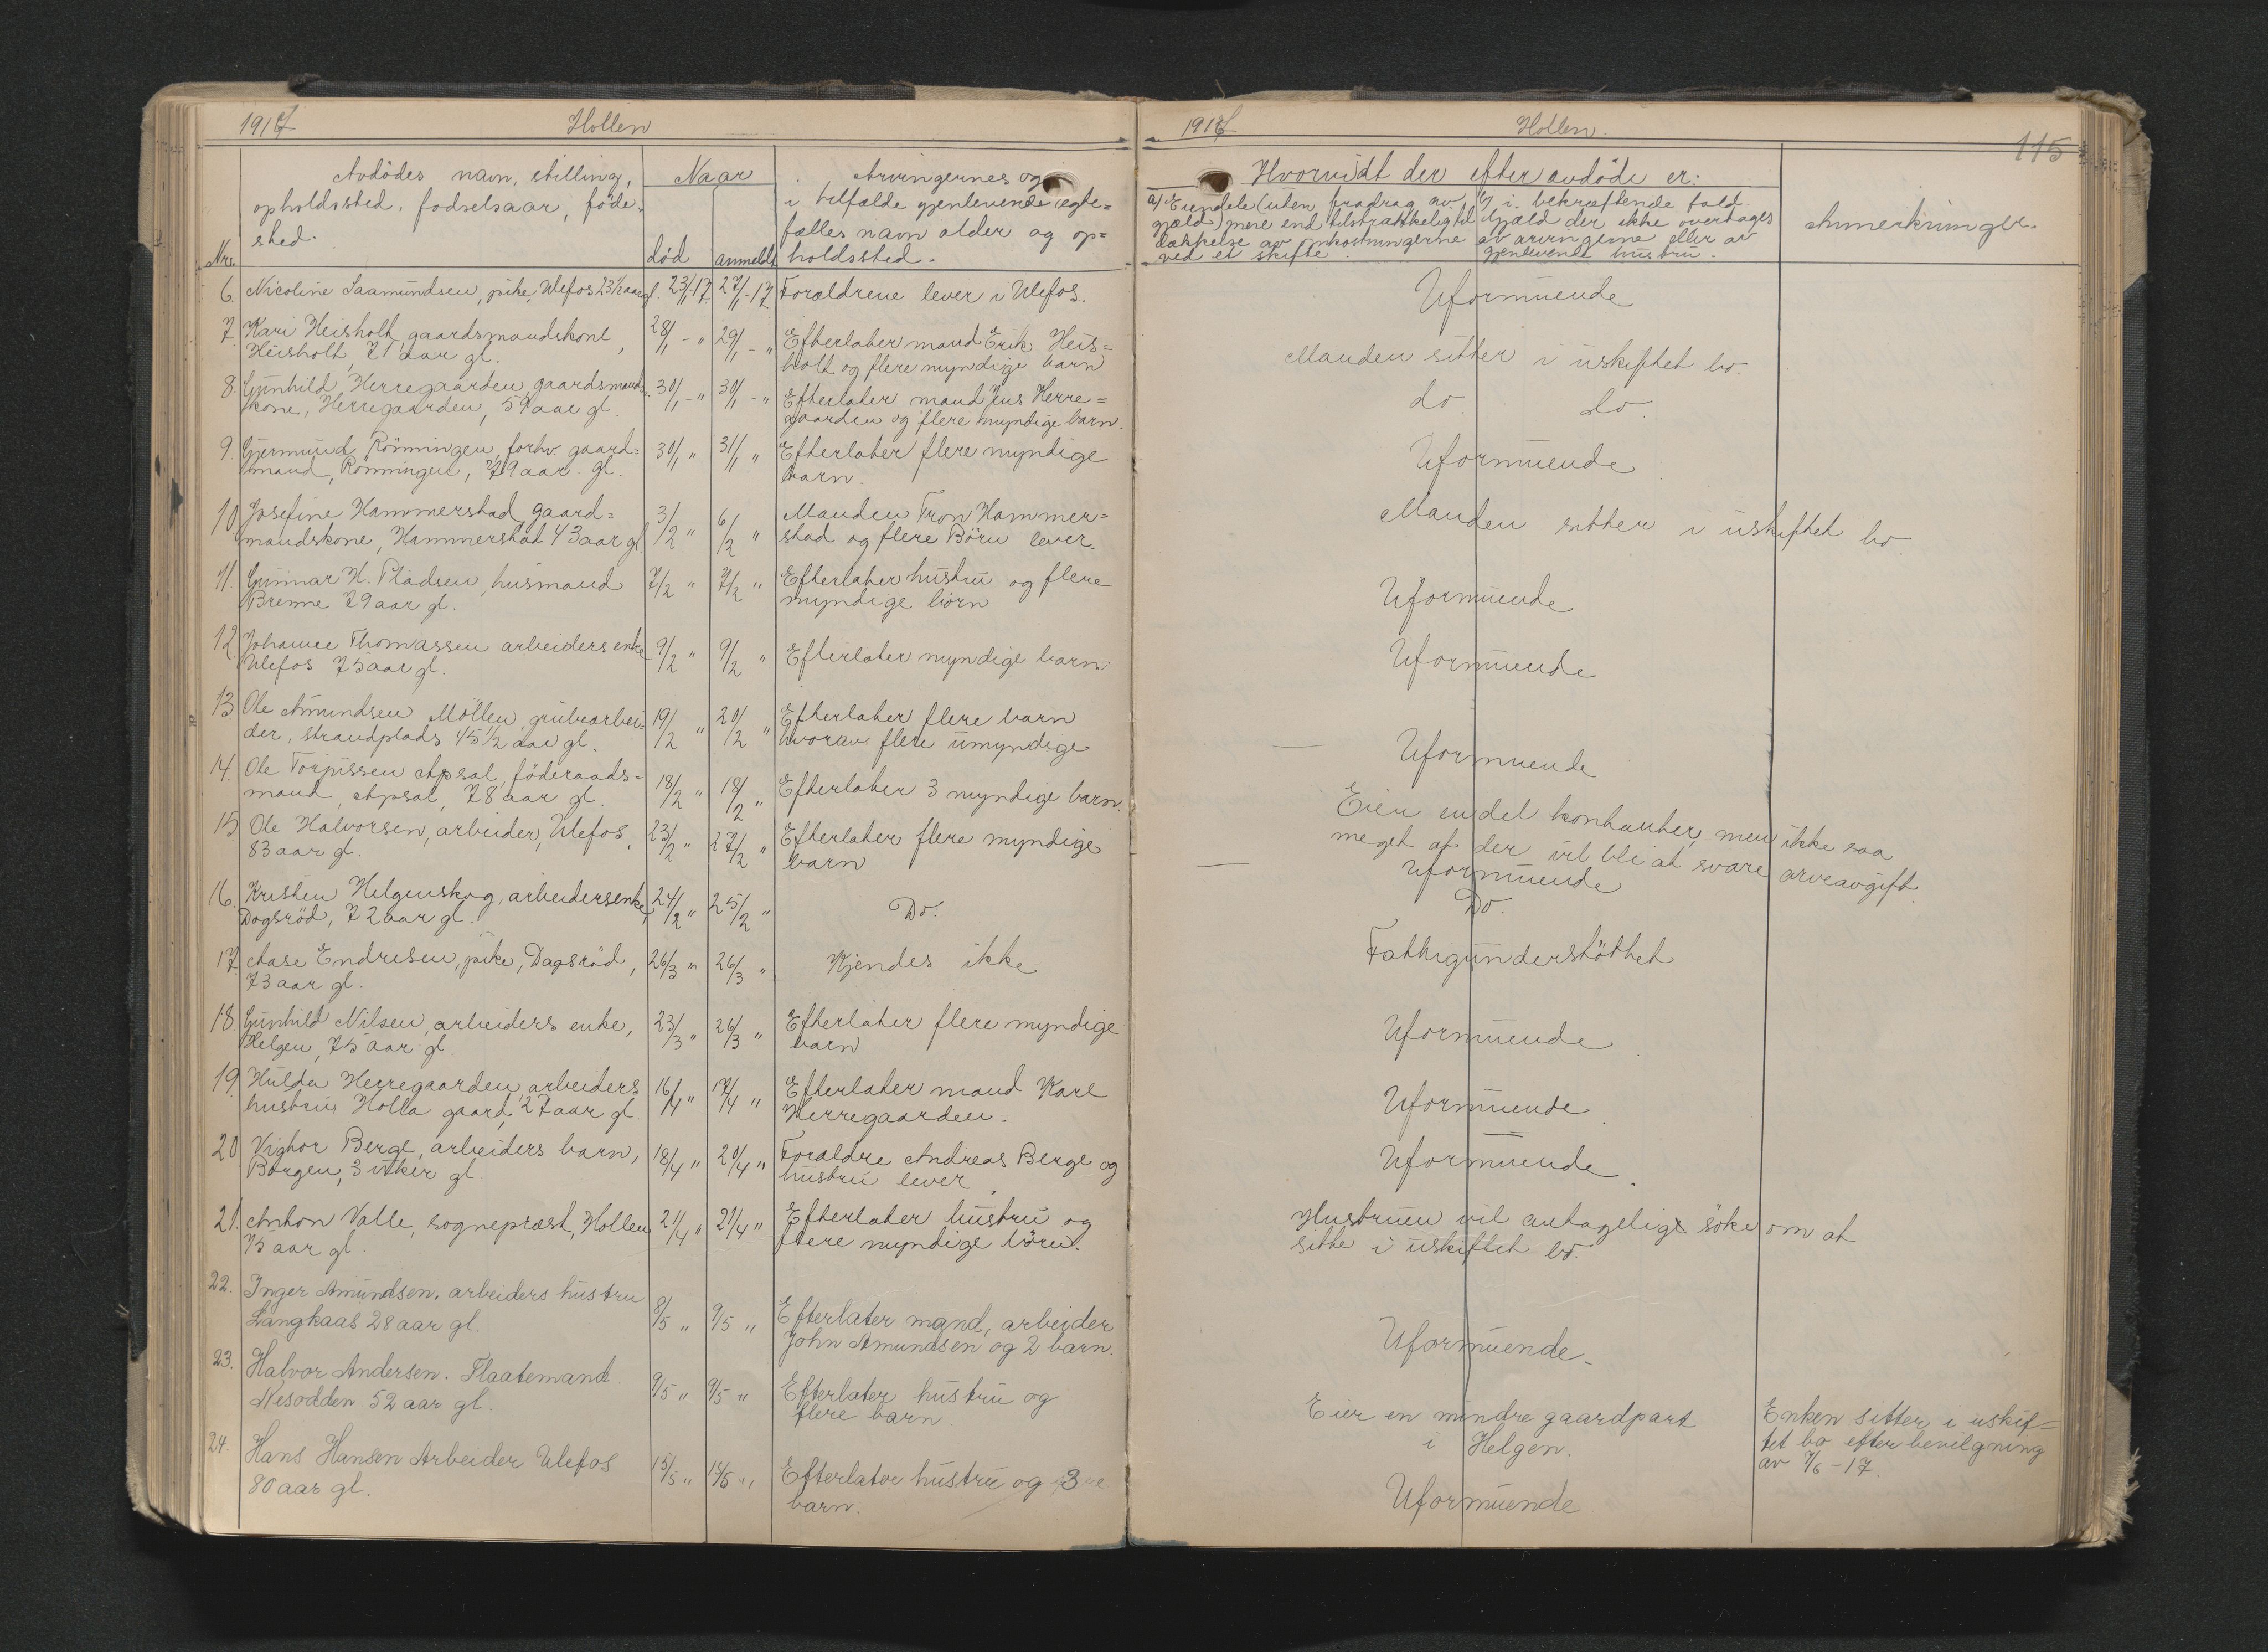 1917 Hollen
Avdödes navn, stilling,
opholdssted, fodselsaar, föde-
sted.
Nr.
Naar
död anmeldt
Arvingernes og
i tilfælde gjenlevende ægte=
fælles navn alder og op=
holdssted.
6. Nicoline Saamundsen, pike, Ulefos 23 1/2 aar gl. 23/1-17. 27/1-17 Forældrene lever i Ulefos.
7. Kari Heisholt, gaardsmandskone, 28/1 - " 29/1 - " Efterlater mand Erik Heis=
Heisholt, 71 aar gl. holt og flere myndige barn
8. Gunhild Herregaarden, gaardsmand= 30/1 - " 30/1 - " Efterlater mand Jens Herre=
kone, Herregaarden, 59 aar gl. gaarden og flere myndige barn.
9. Gjermund Rönningen, forhv gaard= 30/1 " 31/1 " Efterlater flere myndige
mand, Rönningen, 79 aar gl. barn.
10. Josefine Hammerstad, gaard= 3/2 " 6/2 " Manden Tron Hammer=
mandskone, Hammerstad 43 aar gl stad og flere Börn lever.
11. Gunnar H. Pladsen, husmand 7/2 " 7/2 " Efterlater hustru og flere
Brenne 79 aar gl. myndige börn
12. Johanne Thomassen arbeiders enke 9/2 " 9/2 " Efterlater myndige barn
Ulefos 75 aar gl.
13. Ole Amundsen Möllen, grubearbei= 19/2 " 20/2 " Efterlater flere barn
der, strandplads 45 1/2 aar gl. hvorav flere umyndige
14. Ole Torjussen Apsal, föderaads= 18/2 " 18/2 " Efterlater 3 myndige barn.
mand, Apsal, 78 aar gl.
15. Ole Halvorsen, arbeider, Ulefos, 23/2 " 27/2 " Efterlater flere myndige
83 aar gl. barn
16. Kristen Helgenskog, arbeidersenke, 24/2 " 25/2 " Do.
Dagsröd, 72 aar gl.
17. Aase Endresen, pike, Dagsröd, 26/3 " 26/3 " Kjendes ikke
73 aar gl.
18. Gunhild Nilsen, arbeiders enke, 23/3 " 26/3 " Efterlater flere myndige
Helgen, 75 aar gl. barn
19. Hulda Herregaarden, arbeiders 16/4 " 17/4 " Efterlater mand Karl
hustru, Holla gaard, 27 aar gl. Herregaarden.
20. Vightor Berge, arbeiders barn, 18/4 " 20/4 " Foraldre Andreas Berge og
Borgen, 3 uker gl. hustru lever
21. Anton Valle, sogneprest, Hollen 21/4 " 21/4 " Efterlater hustru og
75 aar gl. flere myndige börn.
22. Inger Amundsen. arbeiders hustru 8/5 " 9/5 " Efterlater mand, arbeider
Langkaas 28 aar gl. John Amundsen og 2 barn.
23. Halvor Andersen. Flaatemand. 9/5 " 9/5 " Efterlater hustru og
Nesodden 52 aar gl. flere barn.
24. Hans Hansen Arbeider Ulefos 15/5 " 15/5 " Efterlater hustru og 3
80 aar gl. barn.
1917 Hollen. 115
Hvorvidt der efter avdöde er:
a) Eiendele (uten fradrag av b) i bekræftende fald
gjæld) mere end tilstrækkelig til gjæld der ikke overtages
dækkelse av omkostningerne av arvingerne eller av
ved et skifte. gjenlevende hustru.
Anmerkninger.
Uformuende
Manden sitter i uskiftet bo.
do. do.
Uformuende
Manden sitter i uskiftet bo.
Uformuende
Uformuende
Uformuende
Eier endel kontanter, men ikke saa
meget at der vil bli at svare arveavgift.
Uformuende
Do.
Fattigunderstöttet
Uformuende
Uformuende
Uformuende
Hustruen vil antagelige söke om at
sitte i uskiftet bo.
Uformuende.
Eier en mindre gaardpart
i Helgen.
Enken sitter i uskif=
tet bo efter bevilgning
av 7/6-17.
Uformuende